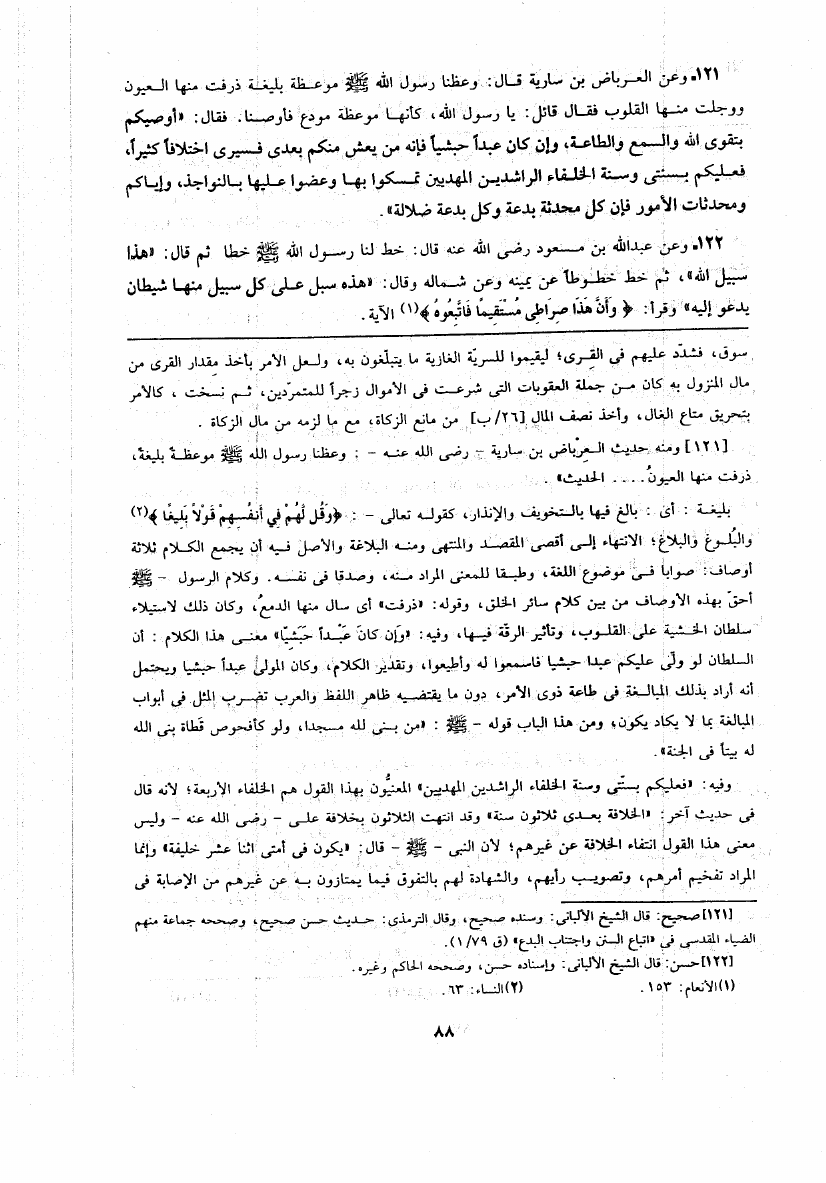 ١٢١ـ وعن العرباض بن سارية قال: وعظنا رسول الله ﷺ موعظة بليغة ذرفت منها العيون
ووجلت منها القلوب فقال قائل: يا رسول الله، كأنها موعظة مودع فأوصنا. فقال: «أوصيكم
بتقوى الله والسمع والطاعة، وإن كان عبداً حبشياً فإنه من يعش منكم بعدى فسيرى اختلافاً كثيراً،
فعليكم بسنتى وسنة الخلفاء الراشدين المهديين تمسكوا بها وعضوا عليها بالنواجذ، وإياكم
ومحدثات الأمور فإن كل محدثة بدعة وكل بدعة ضلالة».
١٢٢ـ وعن عبدالله بن مسعود رضى الله عنه قال: خط لنا رسول الله ﷺ خطا ثم قال: «هذا
سبيل الله»، ثم خط خطوطاً عن يمينه وعن شماله وقال: «هذه سبل على كل سبيل منها شيطان
يدعو إليه» وقرأ: ﴿ وَأَنَّ هَذَا صِرَاطِي مُسْتَقِيمًا فَاتَّبِعُوهُ ﴾(١) الآية.
سوق، فشدّد عليهم فى القرى؛ ليقيموا للسريّة الغازية ما يتبلّغون به، ولعل الأمر بأخذ مقدار القرى من
مال المنزول به كان من جملة العقوبات التى شرعت فى الأموال زجراً للمتمرّدين، ثم نسخت ، كالأمر
بتحريق متاع الغال، وأخذ نصف المال [٢٦/ب] من مانع الزكاة، مع ما لزمه من مال الزكاة .
[١٢١] ومنه حديث العِرْباض بن سارية - رضى الله عنه - : وعظنا رسول الله ﷺ موعظةً بليغةً،
ذرفت منها العيونُ.... الحديث» .
بليغة : أى : بالغ فيها بالتخويف والإنذار، كقوله تعالى - : ﴿وَقُل لَّهُمْ فِي أَنفُسِهِمْ قَوْلاً بَلِيغًا ﴾(٢)
والبُلوغ والبلاغ؛ الانتهاء إلى أقصى المقصد والمنتهى ومنه البلاغة والأصل فيه أن يجمع الكلام ثلاثة
أوصاف: صواباً فى موضوع اللغة، وطبقا للمعنى المراد منه، وصدقا فى نفسه. وكلام الرسول - ﷺ
أحقّ بهذه الأوصاف من بين كلام سائر الخلق، وقوله: «ذرفت» أى سال منها الدمعُ، وكان ذلك لاستيلاء
سلطان الخشية على القلوب، وتأثير الرقّة فيها، وفيه: «وَإن كانَ عَبْداً حَبَشِيّا» معنى هذا الكلام : أن
السلطان لو ولّى عليكم عبدا حبشيا فاسمعوا له وأطيعوا، وتقدير الكلام، وكان المولىّ عبداً حبشيا ويحتمل
أنه أراد بذلك المبالغة فى طاعة ذوى الأمر، دون ما يقتضيه ظاهر اللفظ والعرب تضرب المثل فى أبواب
المبالغة بما لا يكاد يكون؛ ومن هذا الباب قوله - ﷺ : «من بنى لله مسجدا، ولو كأفحوص قَطاة بنى الله
له بيتاً فى الجنة».
وفيه: «فعليكم بسنّتى وسنة الخلفاء الراشدين المهديين» المعنيُّون بهذا القول هم الخلفاء الأربعة؛ لأنه قال
فى حديث آخر: «الخلافة بعدى ثلاثون سنة» وقد انتهت الثلاثون بخلافة على - رضى الله عنه - وليس
معنى هذا القول انتفاء الخلافة عن غيرهم؛ لأن النبى - ﷺ - قال: «يكون فى أمتى اثنا عشر خليفة» وإنما
المراد تفخيم أمرهم، وتصويب رأيهم، والشهادة لهم بالتفوق فيما يمتازون به عن غيرهم من الإصابة فى
[١٢١]صحيح: قال الشيخ الألبانى: وسنده صحيح، وقال الترمذى: حديث حسن صحيح، وصححه جماعة منهم
الضياء المقدسى فى «اتباع السنن واجتناب البدع» (ق ١/٧٩).
[١٢٢]حسن: قال الشيخ الألبانى: وإسناده حسن، وصححه الحاكم وغيره.
(١)الأنعام: ١٥٣. (٢)النساء: ٦٣.
٨٨